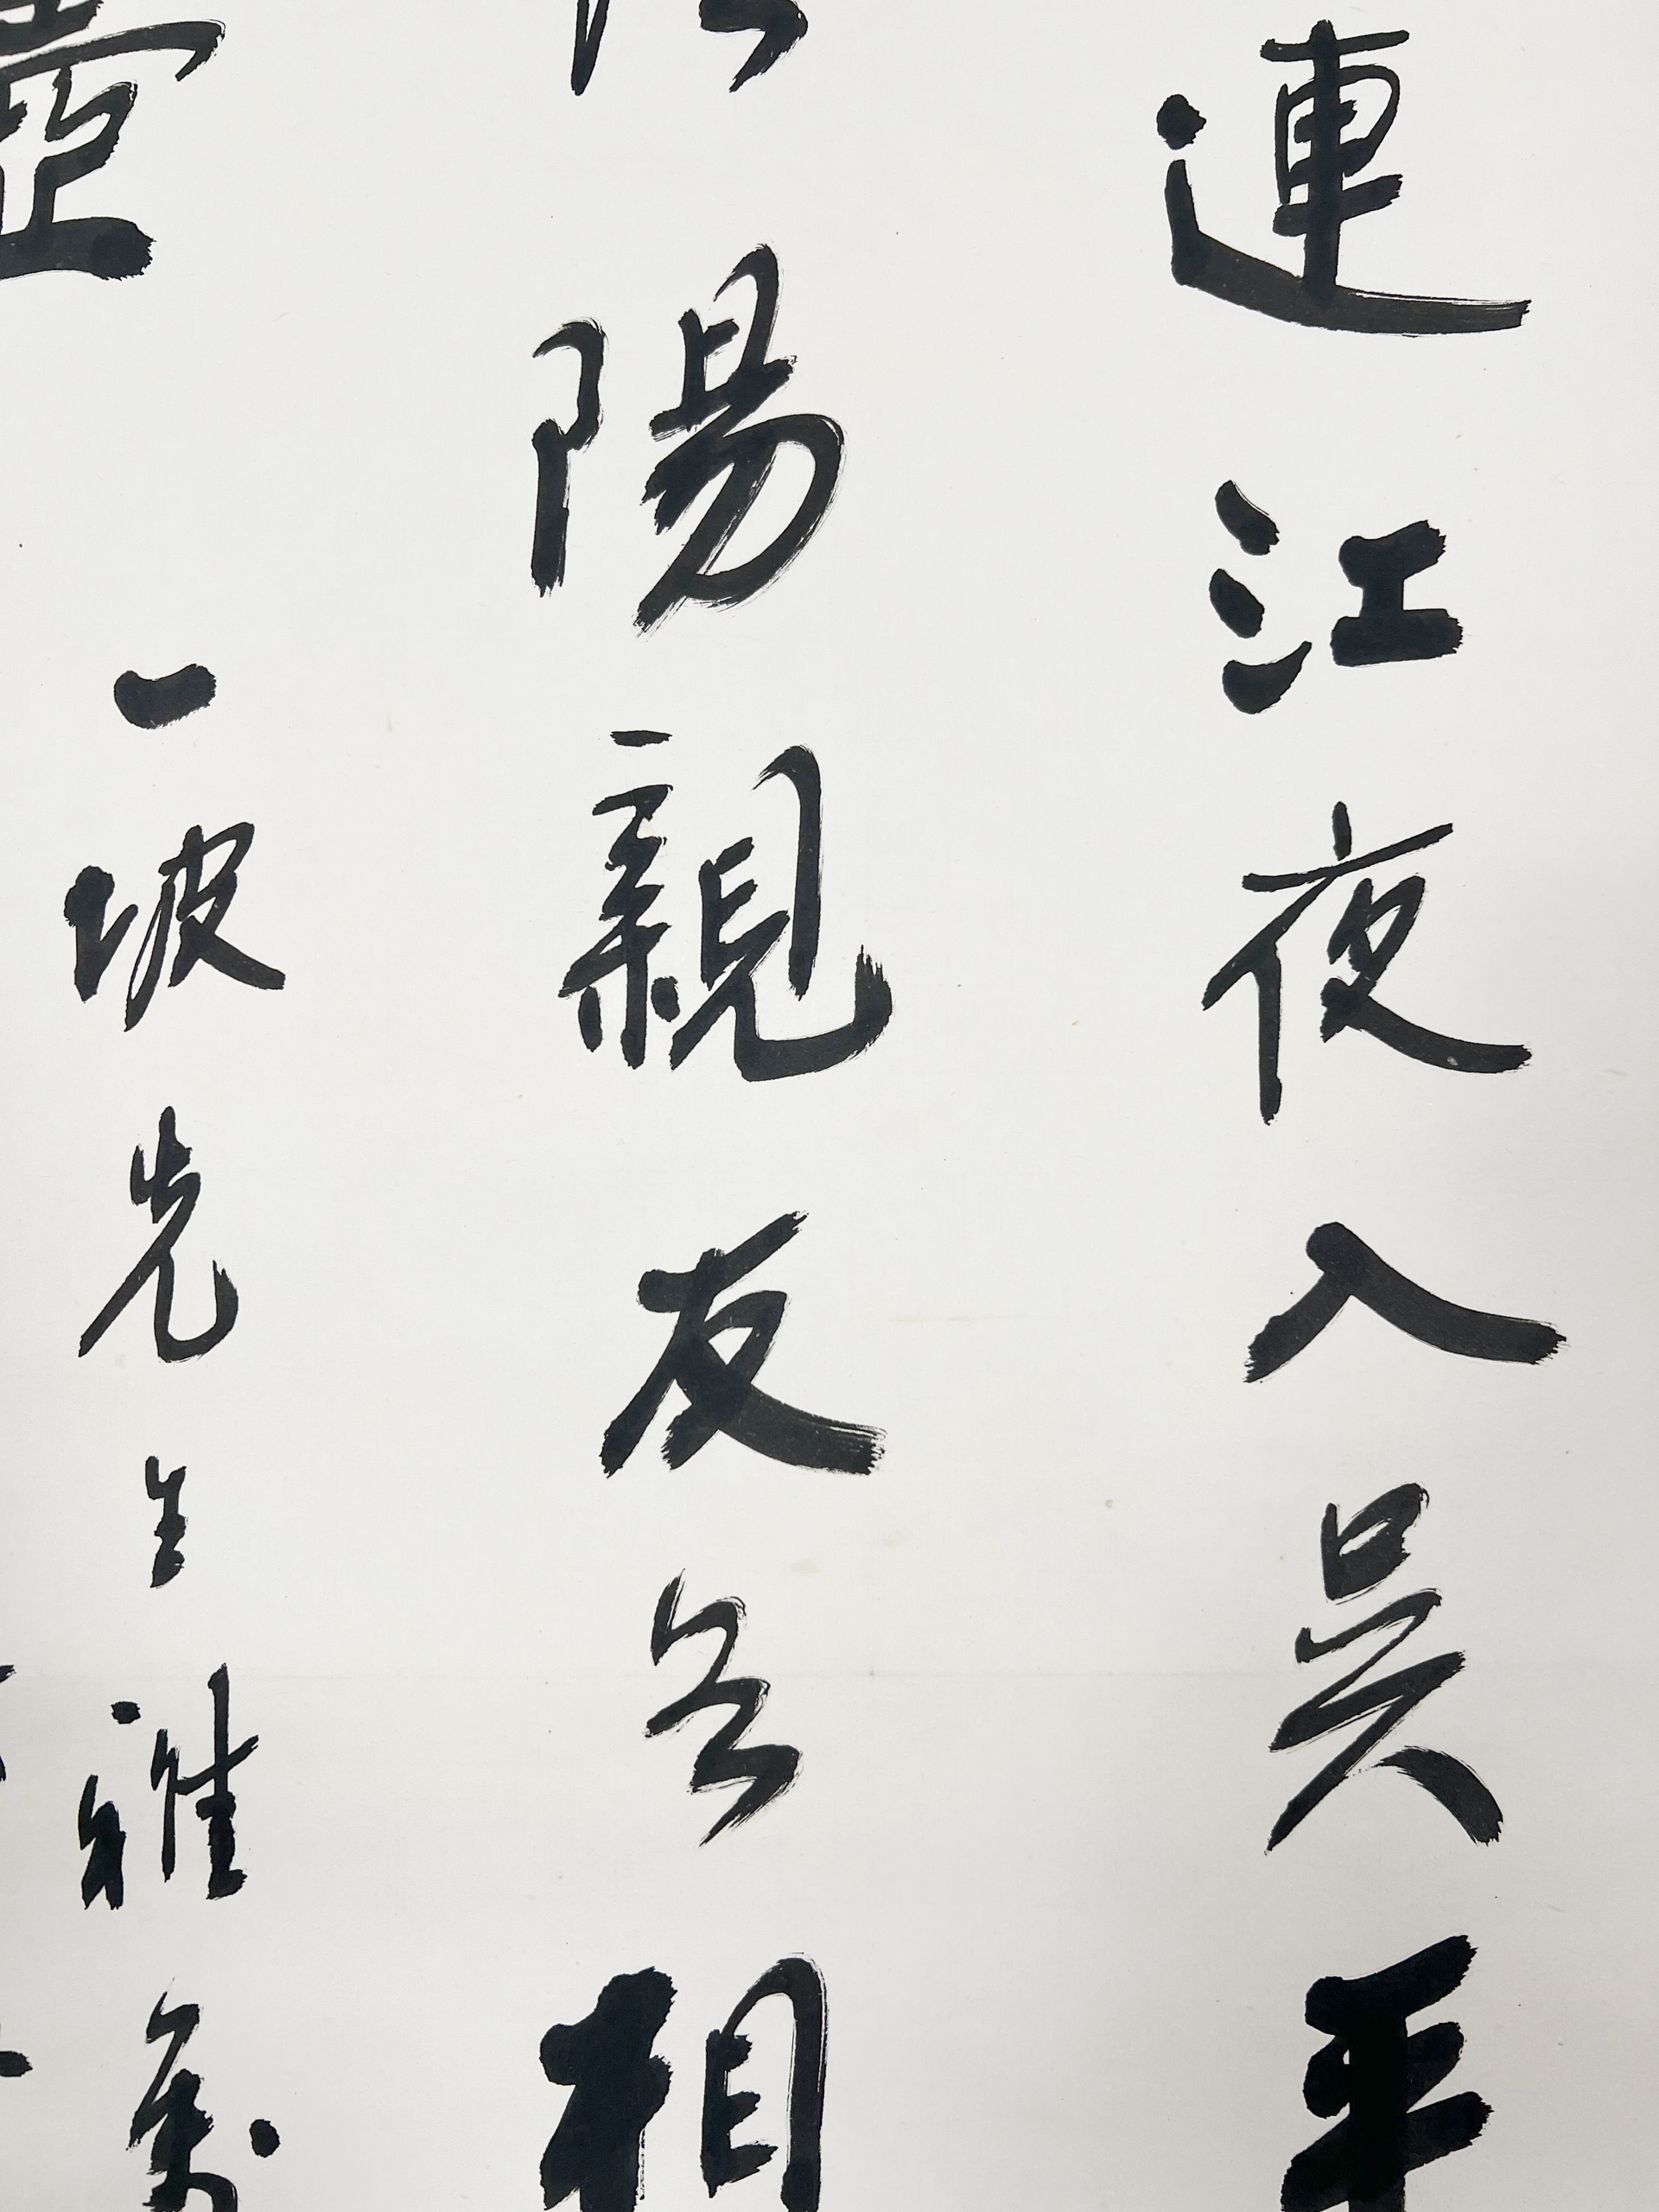 連江夜入吳平
陽親友如相
壺
一坡先生雅